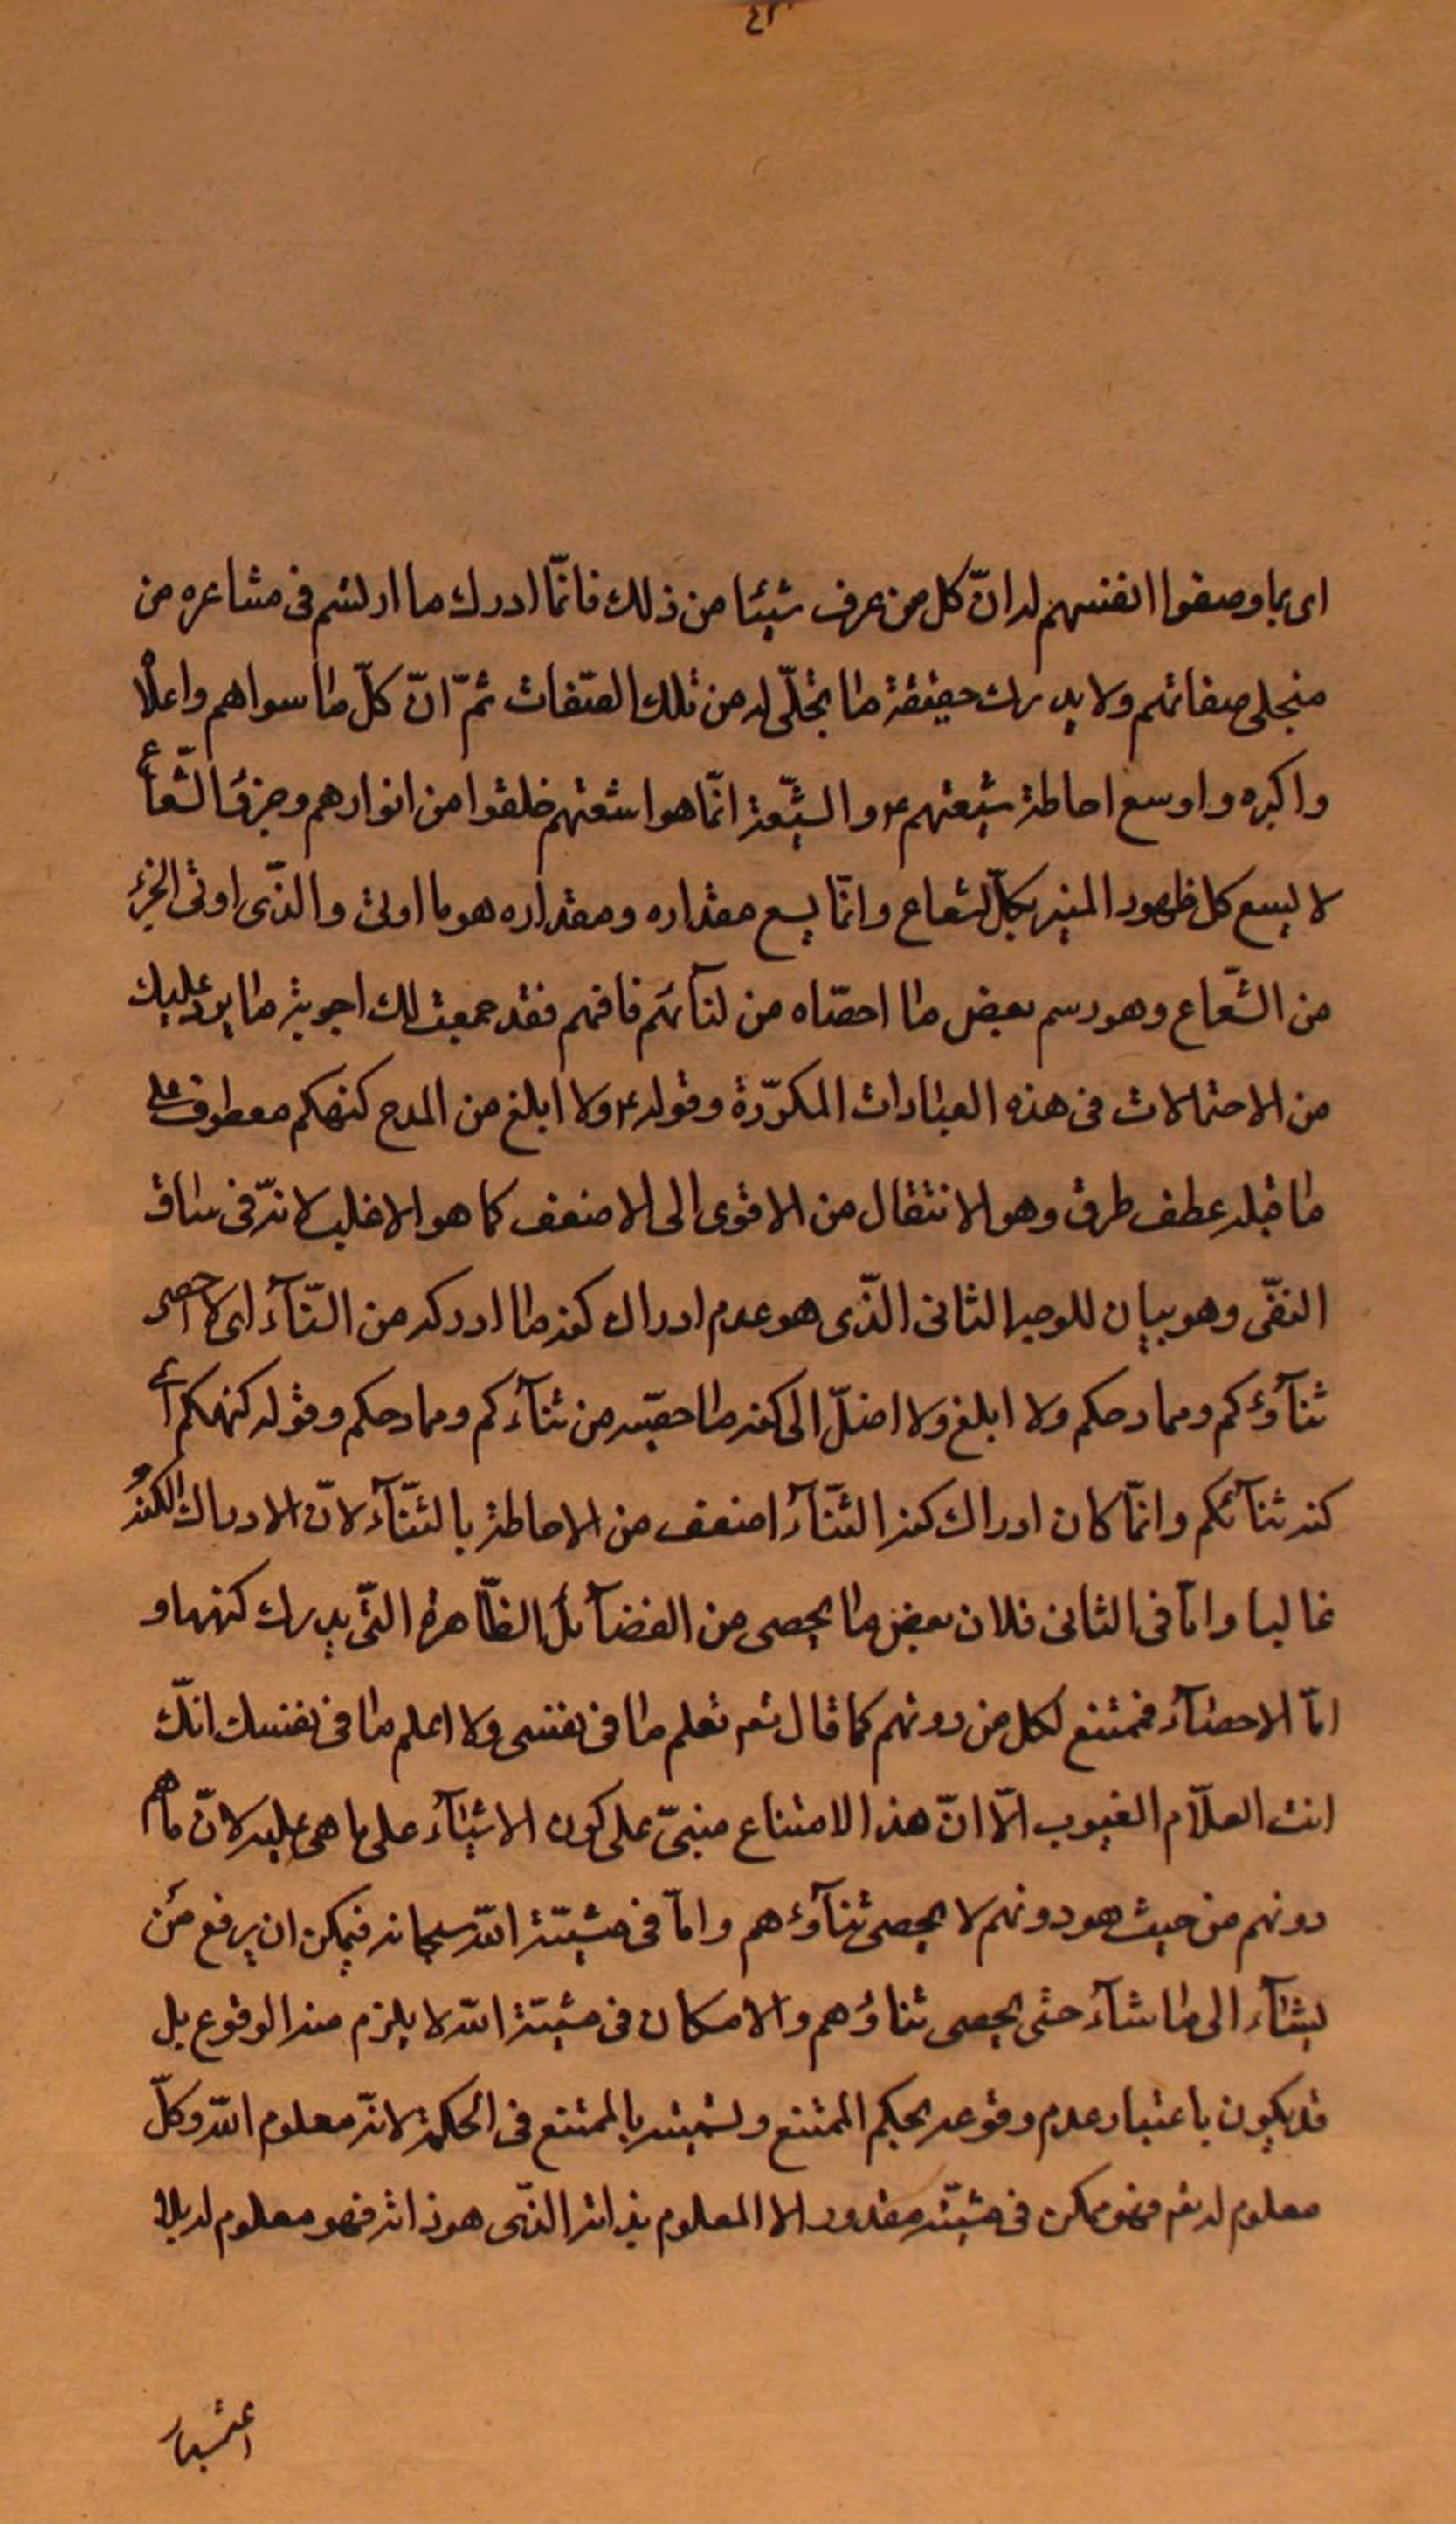 اى بما وصفوا انفسهم له انّ كل من عرف شيئا من ذلك فانّما ادرك ما ارتسم فى مشاعره من
متجلى صفاتهم ولا يدرك حقيقة ما تجلّى له من تلك الصّفات ثمّ انّ كلّ ما سواهم واعلاه
واكبره واوسع احاطة شيعتهم ع والشّيعة انّما هو اشعتهم خلقوا من انوارهم وجزؤ الشّعاع
لا يسع كل ظهور المنير بكلّ لشعاع وانّما يسع مقداره ومقداره هو ما اوتى والذّى اوتى الجزء
من الشّعاع وهو رسم بعض ما احصّاه من ثنآئهم فافهم فقد جمعت لك اجوبة ما يرد عليك
من الاحتمالات فى هذه العبارات المكرّرة وقوله ع ولا ابلغ من المدح كنهكم معطوف على
ما قبله عطف طرق وهو الانتقال من الاقوى الى الاضعف كما هو الاغلب لانّه فى سياق
النفّى وهو بيان للوجه الثانى الذّى هو عدم ادراك كنه ما ادركه من الثّنآء اى لا احصى
ثنآؤكم وممادحكم ولا ابلغ ولا اصل الى كنه ما حصّيته من ثنآءكم وممادحكم وقوله كنهكم اى
كنه ثنآئكم وانّما كان ادراك كنه الثّنآء اضعف من الاحاطة بالثّنآء لانّ الادراك الكنه
غالبا وامّا فى الثانى فلان بعض ما يحصى من الفضآئل الظّاهرة التّى يدرك كنهها و
امّا الاحصآء فممتنع لكل من دونهم كما قال تعم تعلم ما فى نفسى ولا اعلم ما فى نفسك انّك
انت العلّام الغيوب الّا انّ هذا الامتناع مبنىّ على كون الاشيآء على ما هى عليه لانّ ما هم
دونهم من حيث هو دونهم لا يحصى ثنآؤهم وامّا فى مشيّة الله سبحانه فيمكن ان يرفع من
يشآء الى ما شآء حتى يحصى ثناؤهم والامكان فى مشيّة الله لا يلزم منه الوقوع بل
قد يكون باعتبار عدم وقوعه بحكم الممتنع ولتسميته بالممتنع فى الحكمة لانّه معلوم الله وكلّ
معلوم له تعم فهو ممكن فى مشيّته مقدور الا المعلوم بذاته الذّى هو ذاته فهو معلوم له بلا
اعتبار